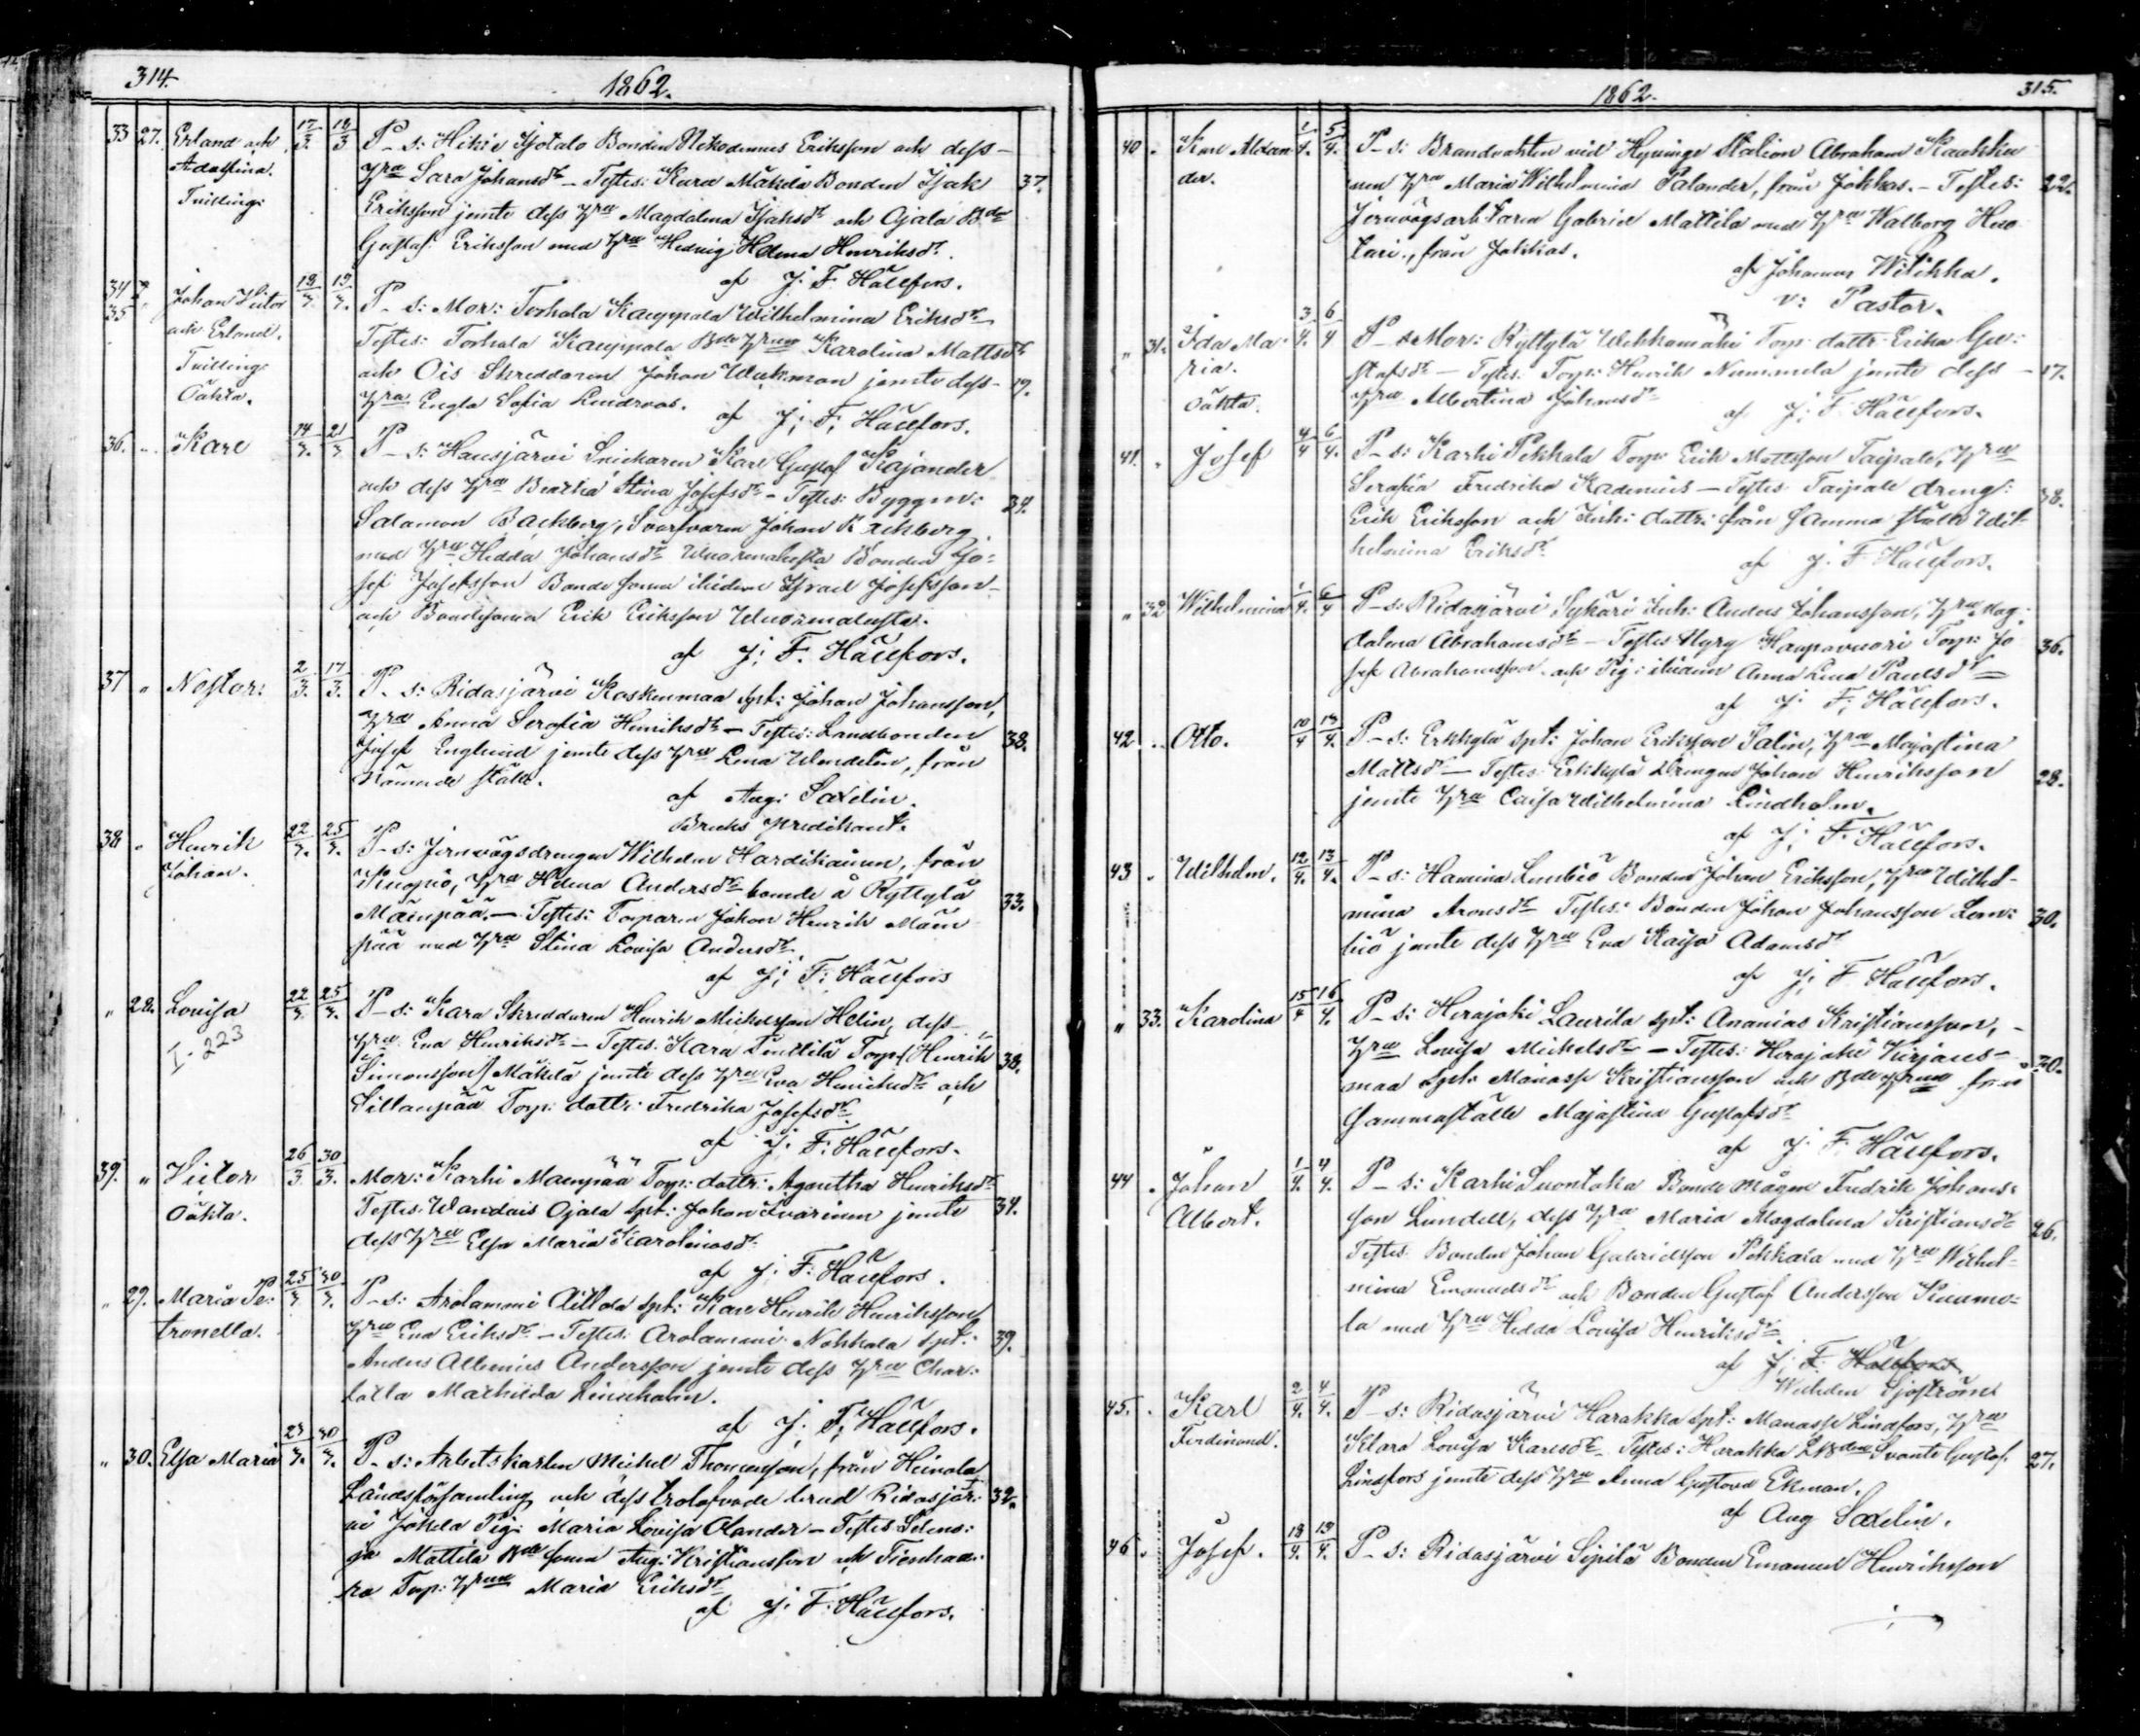 314.
1862.
33 27. Erland och 17/3. 18/3 P_s: Hikiä Isotalo Bonden Nikodemus Eriksson och dess
Adolfina. hru Sara Johansdr - Testes: Kara Mäkilä Bonden Isak 37.
Tvilling: Eriksson jemte dess hru Magdalena Isaksdr och Ojala Bdn
Gustaf Eriksson med hru Hedvig Helena Henriksdr.
af J. F. Hällfors.
34 35 Johan Victor 18/3. 19/3. P_s: Mor: Torhola Kauppala Wilhelmina Eriksdr
och Erland. Testes: Torhola Kauppala Bde hrun Karolina Mattsdr
Tvilling: och Ois Skreddaren Johan Wickman jemte dess 19.
Oäkta. hru Engla Sofia Lindroos. af J. F. Hällfors.
36. Karl 14/3. 21/3 P_s: Hausjärvi Snickaren Karl Gustaf Kajander
och dess hru Beatha Stina Josefsdr - Testes: Byggm:
Salamon Backberg, Svarfvaren Johan Backberg
med hru Hedda Johansdr Bonden Jo-
sef Josefsson Bonde sonen ibidem Israel Josefsson
och Bondesonen Erik Eriksson
af J. F. Hällfors.
37 " Nestor: 2/3. 17/3. P_s: Ridasjärvi Koskenmaa Spt: Johan Johansson,
hru Anna Serafia Henriksdr - Testes: Landbonden 38.
Josef Englund jemte dess hru Lena Wendelin, från
nämnde ställe.
af Aug: Saxelin.
Bruks predikant.
38 " Henrik 22/3. 25/3. P_s: Jernvägsdrengen Wilhelm Hardikainen, från
Johan. Kuopio, hru Helena Andersdr boende å Ryttylä 33.
Mäenpää. - Testes: Torparen Johan Henrik Mäen
pää med hru Stina Lovisa Andersdr.
af J. F. Hällfors
" 28. Lovisa 22/3. 25/3. P_s: Kara Skreddaren Henrik Michelsson Helin, dess
I. 223 hru Eva Henriksdr - Testes: Kara Penttilä Torp: Henrik 38.
Simonsson Mäkelä jemte dess hru Eva Henriksdr och
Sillanpää Torp: dottr: Fredrika Josefsdr
af J. F. Hällfors.
39. " Victor 26/3 30/3. Mor: Karhi Mäenpää Torp: dottr: Agnetha Henriksdr
Oäkta. Testes: Ojala Spt: Johan Ivarinen jemte 31.
dess hru Elsa Maria Karolinasdr
af J. F. Hällfors.
" 29. Maria Pe- 25/3 30/3. P_s: Arolammi Aittola Spt: Karl Henrik Henriksson
tronella. hru Eva Eriksdr - Testes: Arolammi Nokkala Spt: 39.
Anders Albenius Andersson jemte dess hru Char-
lotta Mathilda Lineholm.
af J. F. Hällfors.
" 30. Elsa Maria 23/3. 30/3. P_s: Arbetskarlen Michel Thomasson, från Heinola
Landsförsamling och dess trolofvade brud Ridasjär- 32.
vi Jokela Pig: Maria Lovisa Olander - Testes:
Mattila Bde sonen Aug: Kristiansson och Tienhaa-
ra Torp: hrun Maria Eriksdr
af J. F. Hällfors.
1862.
315.
40 . Karl Alexan 1/4. 5/4. P_s: Brandvakten vid Hyvinge Station Abraham Kaukki
der. nen hru Maria Wilhelmina Palander, från Jokkas. - Testes: 22.
Jernvägsarb: karlen Gabriel Mattila med hru Walborg Huo
tari., från Jokkas.
af Johannes Wilikka.
v: Pastor.
" 31. Ida Ma- 3/4. 6/4 P_s Mor: Ryttylä Torp: dottr: Erika Gu-
ria. stafsdr - Testes: Torp: Henrik Nummela jemte dess 17.
Oäkta. hru Albertina Johansdr
af J. F. Hällfors.
41. " Josef 4/4 6/4. P_s: Karhi Pekkala Torp: Erik Mattsson Taipale, hru
Serafia Fredrika Kadenius - Testes: Taipale dreng: 38.
Erik Eriksson och Inh: dottr: från samma ställe Wil-
helmina Eriksdr
af J. F. Hällfors.
" 32. Wilhelmina 1/4. 6/4 P_s: Ridasjärvi Sykäri Inh: Anders Johansson, hru Mag-
dalena Abrahamsdr - Testes: Nyry Haapavuori Torp: Jo 36.
sef Abrahamsson och Pig: ibidem Anna Lena Paulsdr
af J. F. Hällfors.
42 .. Otto. 10/4 13/4. P_s: Erkkylä Spt: Johan Eriksson Salin, hru Majastina
Mattsdr - Testes: Erkkylä Drengen Johan Henriksson 28.
jemte hru Caisa Wilhelmina Lindholm.
af J. F. Hällfors.
43 . Wilhelm. 12/4. 13/4. P_s: Hamina Lembiö Bonden Johan Eriksson, hru Wilhel-
mina Aronsdr Testes: Bonden Johan Johansson Lem- 30.
biö jemte dess hru Eva Kaisa Adamsdr
af J. F. Hällfors.
" 33. Karolina 15/4 16/4. P_s: Herajoki Laurila Spt: Ananias Kristiansson,
hru Lovisa Michelsdr - Testes: Herajoki Virjans- 30.
maa Spt: Manasse Kristiansson och Bde hrun från
samma ställe Majastina Gustafsdr
af J. F. Hällfors.
44 . Johan 1/4. 4/4. P_s: Karhi Luontoka Bonde mågen Fredrik Johans-
Albert. son Lundell, dess hru Maria Magdalena Kristiansdr 26.
Testes: Bonden Johan Gabrielsson Pekkala med hru Wilhel-
mina Emanuelsdr och Bonden Gustaf Andersson Kuumo-
la med hru Hedda Lovisa Henriksdr
af J. F. Hällfors
Wilhelm Sjöström
45. . Karl 2/4. 4/4. P_s: Ridasjärvi Harakka Spt: Manasse Lindfors, hru
Ferdinand. Klara Lovisa Karlsdr Testes: Harakka LBden Svante Gustaf 27.
Lindfors jemte dess hru Anna Gustava Ekman.
af Aug Saxelin.
46 . Josef. 13/4. 13/4. P_s: Ridasjärvi Sipilä Bonden Emanuel Henriksson